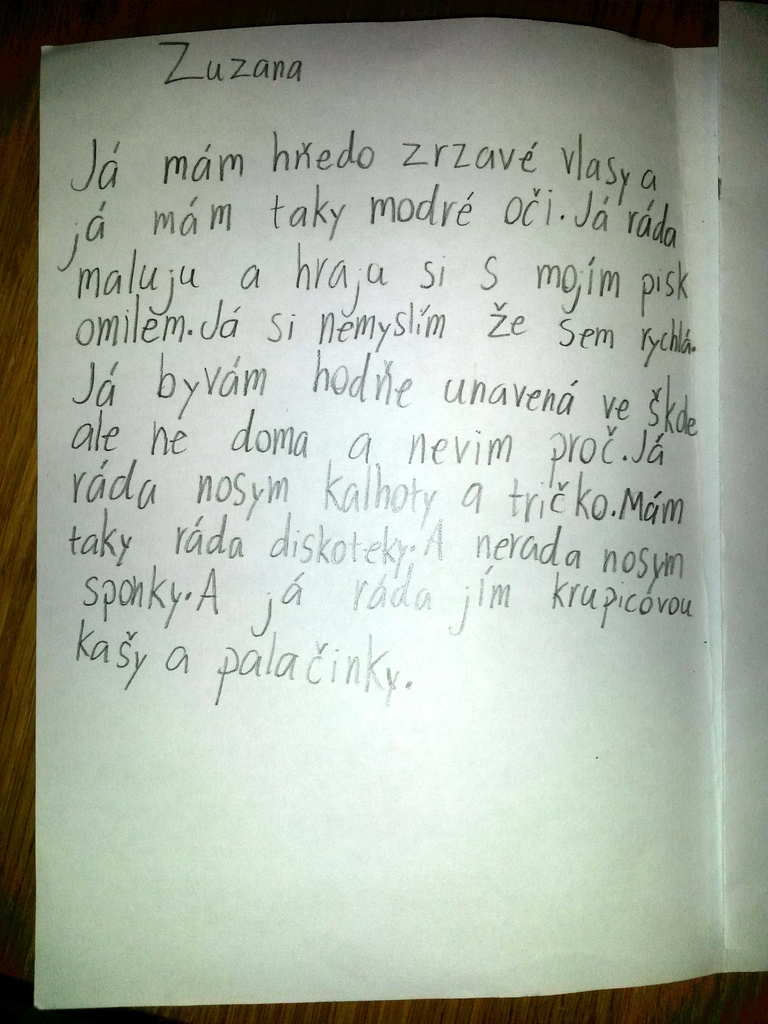 Zuzana
Já mám hňedo zrzavé vlasy a
já mám taky modré oči. Já ráda
maluju a hraju si s mojím pisk
omilem. Já si nemyslím že sem rychlá.
Já byvám hodňe unavená ve škde
ale ne doma a nevim proč. Já
ráda nosym kalhoty a tričko. Mám
taky ráda diskoteky. A nerada nosym
sponky. A já ráda jím krupicovou
kašy a palačinky.